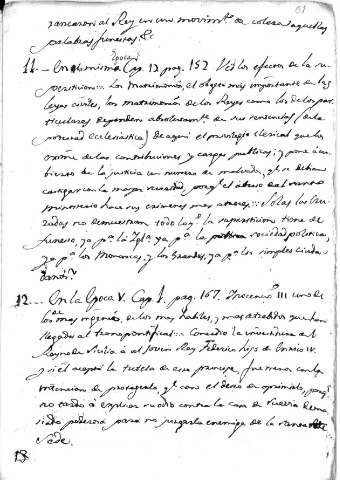 51
rancaron al Rey en un movim.to de colera aquellas
palabras funestas &c
11. — En la misma Epoca Cap. 12 pag. 152. Ved los efectos de la su-
persticion. Los Matrimonios, el objeto mas importante de las
leyes civiles, los matrimonios de los Reyes como los de los par-
ticulares dependen absolutam.te de sus ventental (de la
potestad ecclesiastica) de aqui el privilegio clerical que los
exime de las contribuciones y cargas publicas; y pone à cu-
bierto de la justicia un numero de malvados, q.e se debian
castigar con la mayor severidad, porq.e el abuso del santo
ministerio hace sus crimenes mas atroces. Solas las Cru-
zadas no demuestran todo lo q.e la supersticion tiene de
funesto, ya p.a la Igl.a ya p.a la sociedad politica,
ya p.a los Monarcas, y los Grandes, ya p.a los simples Ciuda-
danos.
12. — En la Epoca V. Cap. I. pag. 167. Inocencio III uno de
los mas ingenios, de los mas habiles, y mas atrebidos que han
llegado al trono pontifical. Concedio la investidura del
Reyno de Sicilia à el joven Rey Federico hijo de Enrico IV.
y si el acepto la tutela de este principe, fue menos con la
intencion de protegerlo q.e con el deseo de oprimirlo, porq.e
no tardo à explicar su odio contra la casa de Suevia dema-
siado poderosa para no juzgarla enemiga de la santa
Sede.
13